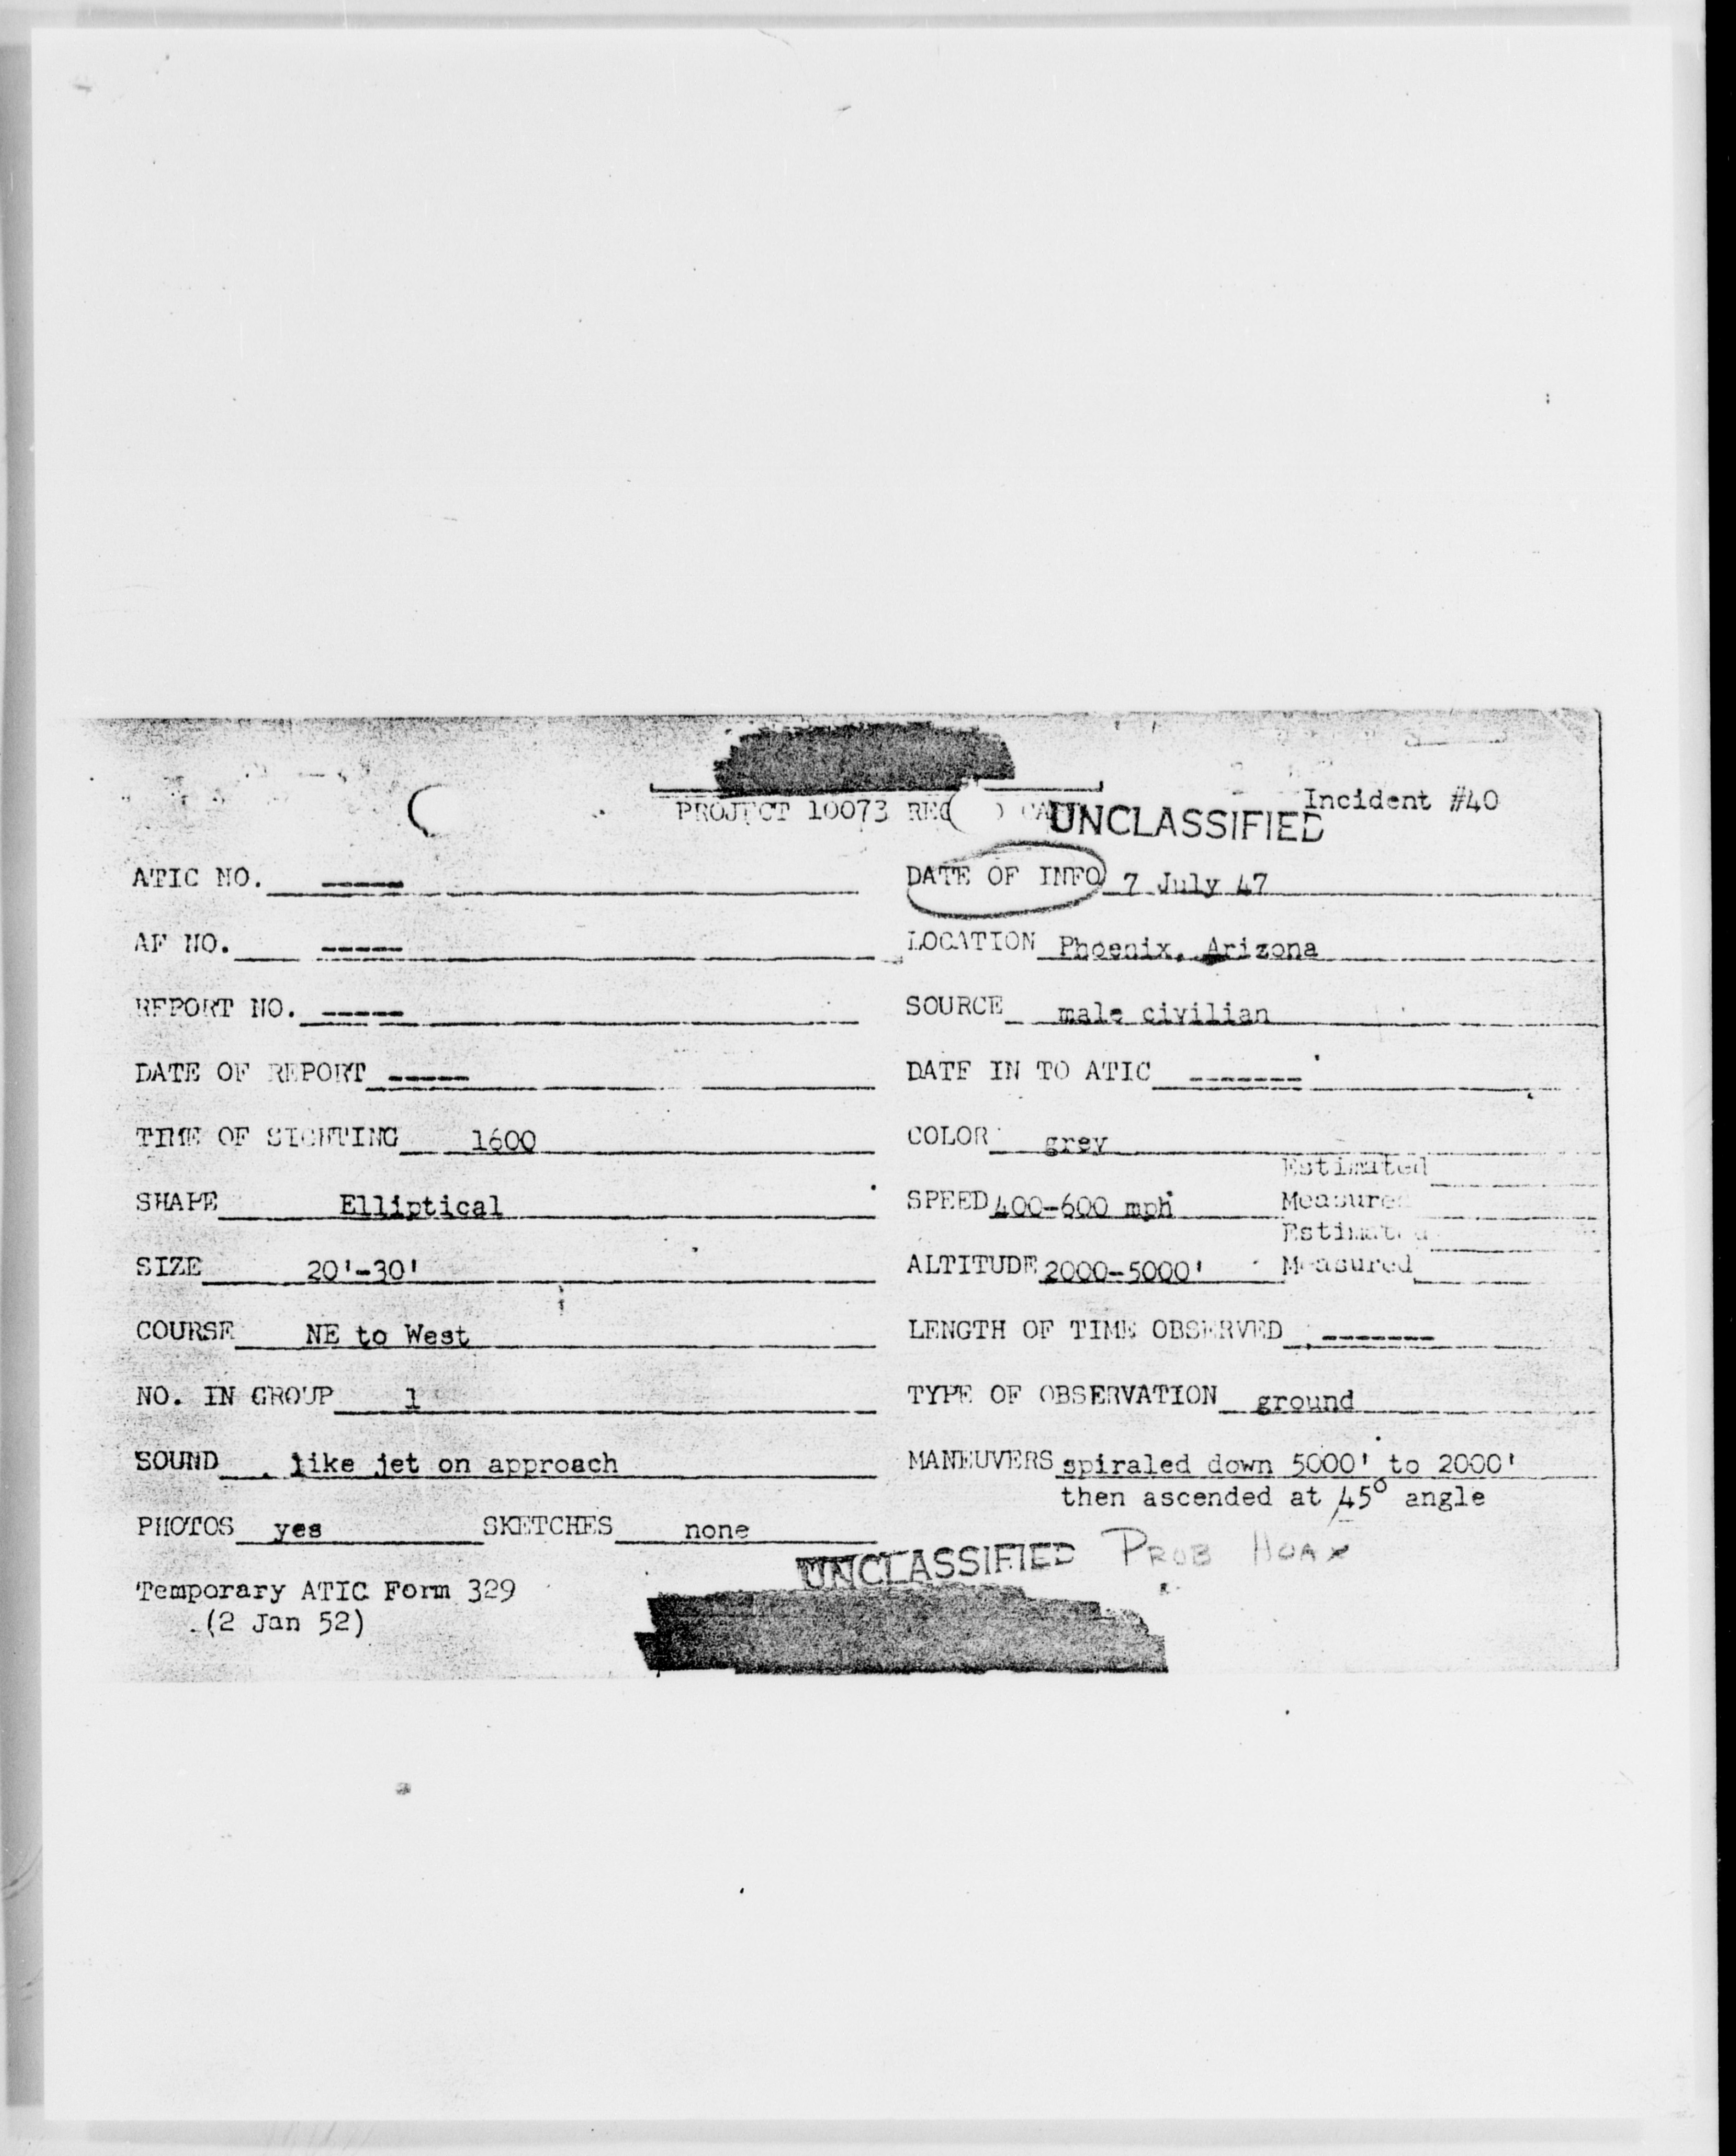 PROJECT 10073 UNCLASSIFIED Incident #40
ATIC NO. ----- DATE OF INFO 7 July 47
AF NO. ----- LOCATION Phoenix, Arizona
REPORT NO. ----- SOURCE male civilian
DATE OF REPORT ----- DATE IN TO ATIC -------
TIME OF SIGHTING 1600 COLOR grey
Estimated
SHAPE Elliptical SPEED 400-600 mph Measured
Estimated
SIZE 20'-30' ALTITUDE 2000-5000' Measured
COURSE NE to West LENGTH OF TIME OBSERVED -------
NO. IN GROUP 1 TYPE OF OBSERVATION ground
SOUND like jet on approach MANEUVERS spiraled down 5000' to 2000'
then ascended at 45° angle
PHOTOS yes SKETCHES none
UNCLASSIFIED PROB HOAX
Temporary ATIC Form 329
(2 Jan 52)